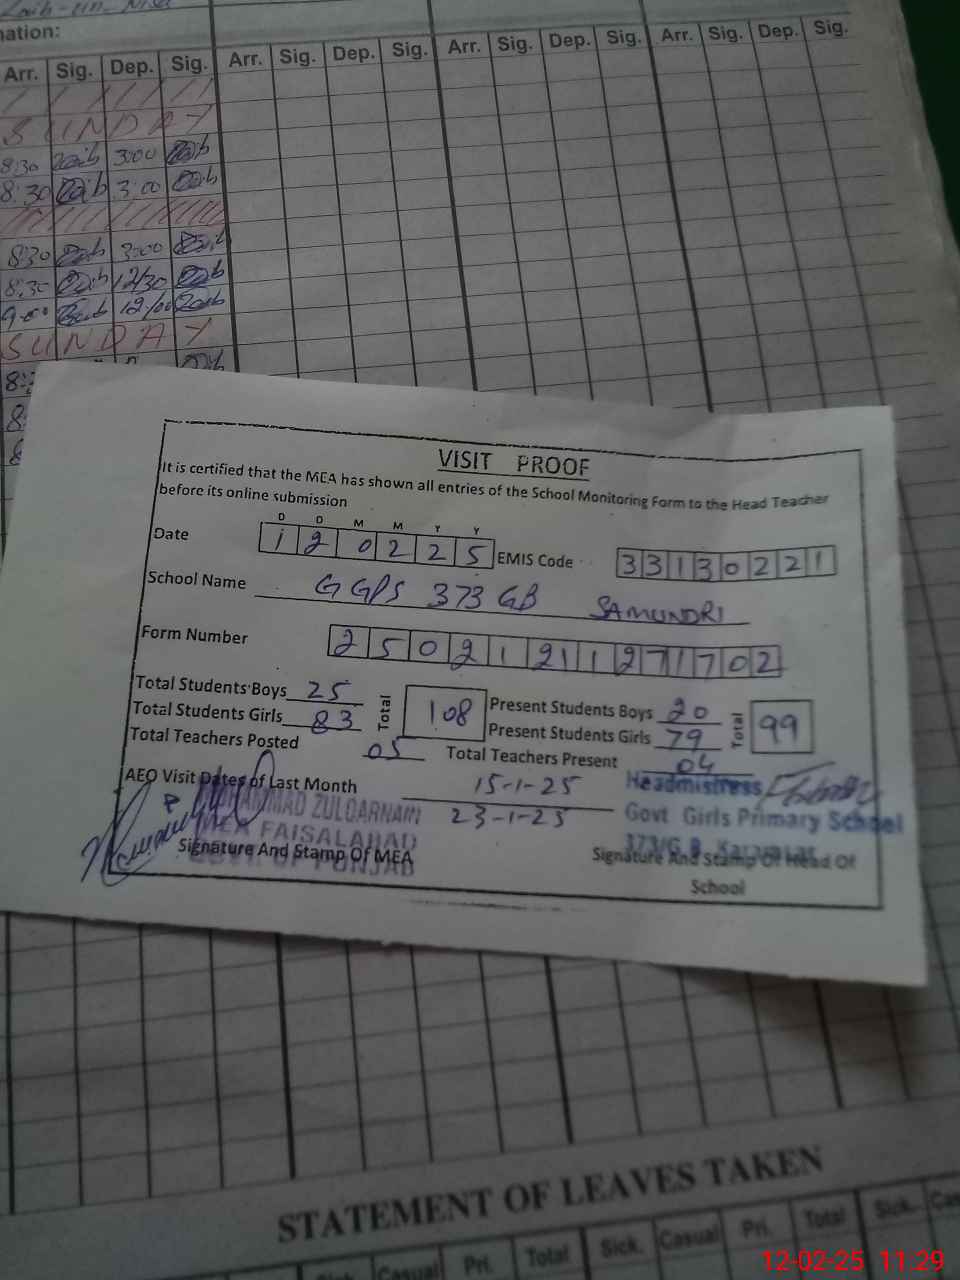 Zaib-un-Nisa
nation:
Arr. Sig. Dep. Sig. Arr. Sig. Dep. Sig. Arr. Sig. Dep. Sig. Arr. Sig. Dep. Sig.
SUNDAY
8:30 Zaib 3:00 Zaib
8:30 Zaib 3:00 Zaib
8:30 Zaib 3:00 Zaib
8:30 Zaib 12/30 Zaib
9:00 Zaib 12/00 Zaib
SUNDAY
VISIT PROOF
It is certified that the MEA has shown all entries of the School Monitoring Form to the Head Teacher
before its online submission
D D M M Y Y
Date 12 02 25 EMIS Code 33130221
School Name GGPS 373 GB SAMUNDRI
Form Number 2 5 0 2 1 2 1 1 2 7 1 7 0 2
Total Students Boys 25 Total 108 Present Students Boys 20 Total 99
Total Students Girls 83 Present Students Girls 79
Total Teachers Posted 05 Total Teachers Present 04
AEO Visit Dates of Last Month 15-1-25
23-1-25
Headmistress
Govt Girls Primary School
373/G.B.
MUHAMMAD ZULQARNAIN
MEA FAISALABAD
GOVT. OF PUNJAB
Signature And Stamp Of MEA
Signature And Stamp Of Head Of
School
STATEMENT OF LEAVES TAKEN
Sick. Casual Pri. Total Sick. Casual Pri. Total Sick. Cas
12-02-25 11:29